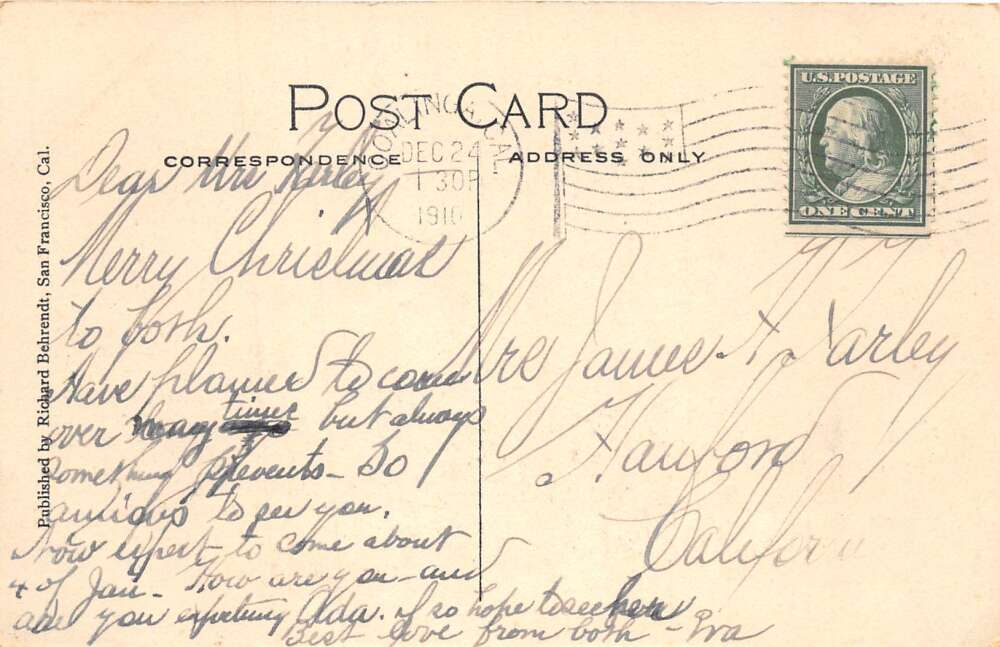 POST CARD
CORRESPONDENCE
ADDRESS ONLY
U.S. POSTAGE
ONE CENT
COALINGA, CAL.
DEC 24
1 30P
1910
Published by Richard Behrendt, San Francisco, Cal.
Dear Mrs Karley
Merry Christmas
to both.
Have planned to come
over many times but always
something prevents - So
anxious to see you.
Now expect to come about
4 of Jan - How are you - and
are you expecting Ada. If so hope to see her
Best love from both - Eva
Mrs James H Karley
Hanford
California